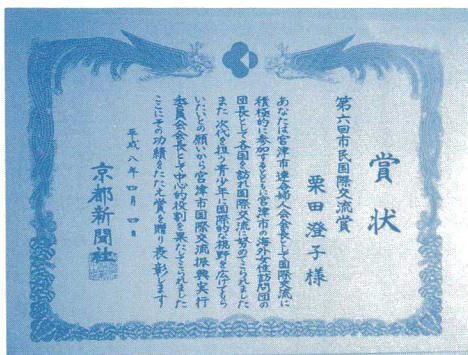 賞状
第六回市民国際交流賞
栗田澄子様
あなたは宮津市連合婦人会会長として国際交流に
積極的に参加するとともに宮津市の海外女性訪問団の
団長として各国を訪れ国際交流に努めてこられました
また次代を担う青少年に国際的な視野を広げてもら
いたいとの願いから宮津市国際交流振興実行
委員会会長として中心的役割を果たしてこられました
ここにその功績をたたえ賞を贈り表彰します
平成八年四月四日
京都新聞社